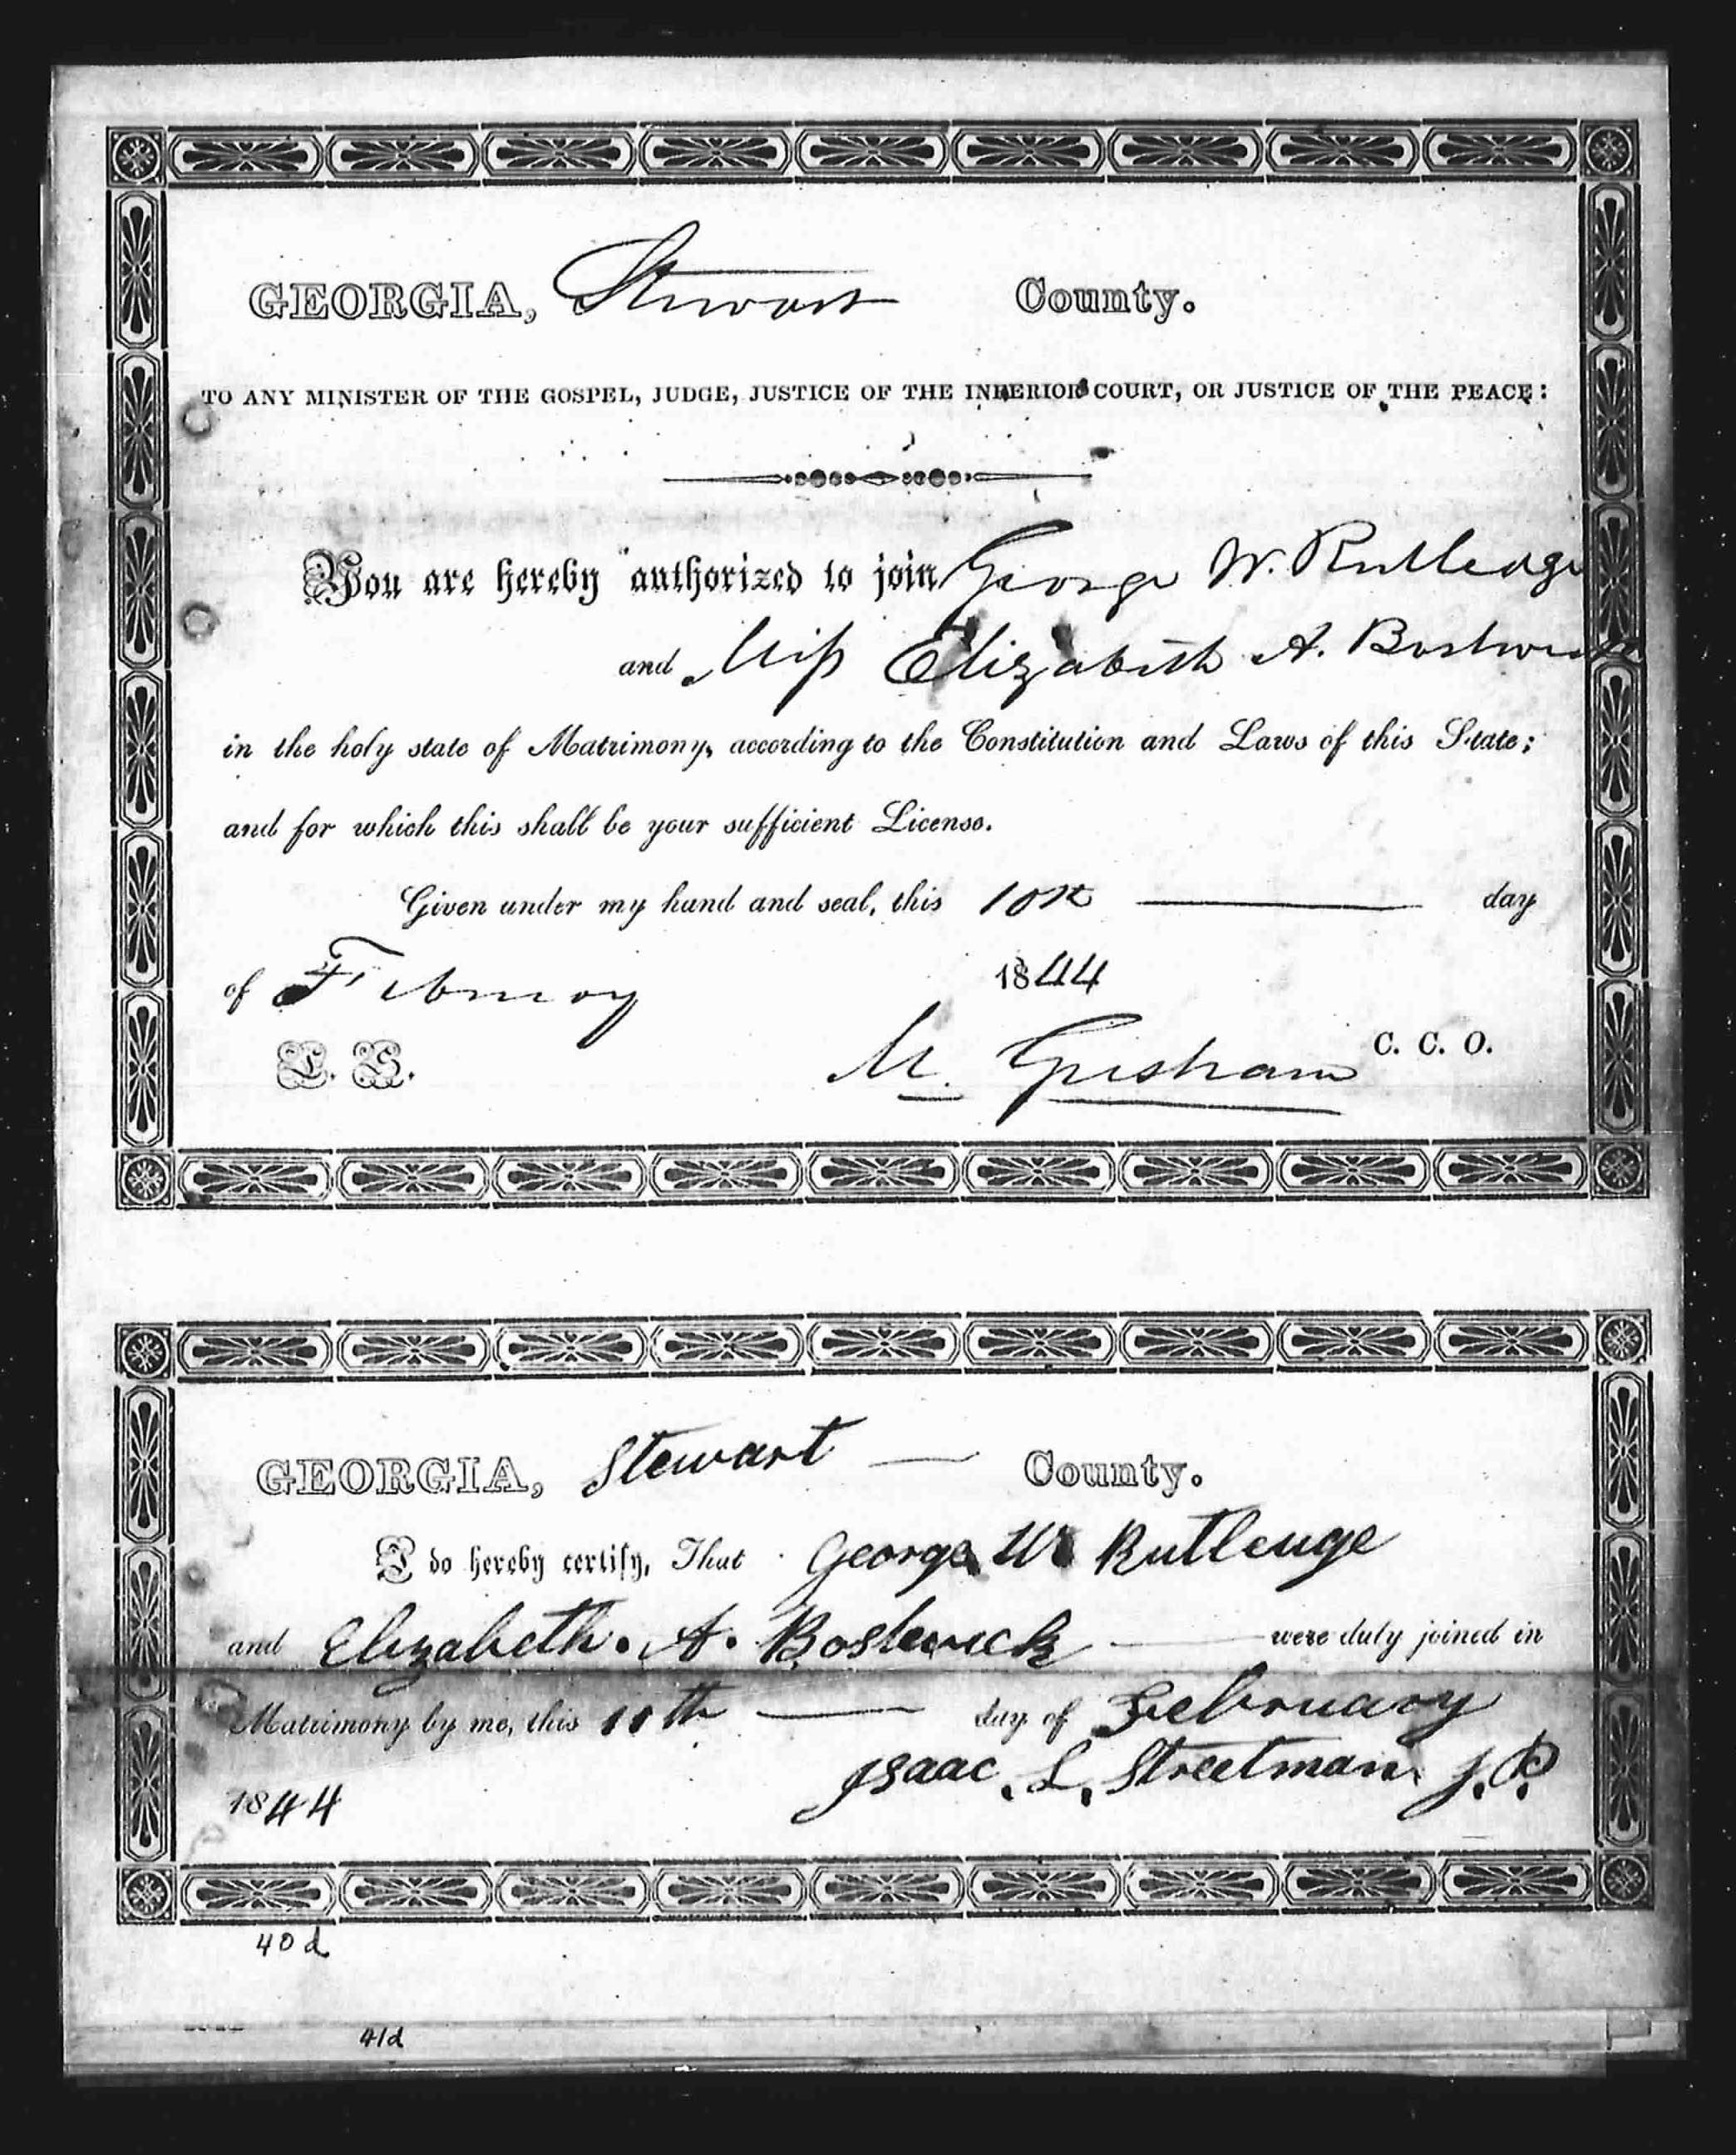 GEORGIA, Stewart County.
TO ANY MINISTER OF THE GOSPEL, JUDGE, JUSTICE OF THE INFERIOR COURT, OR JUSTICE OF THE PEACE:
You are hereby authorized to join George W. Rutledge
and Miss Elizabeth A. Bostwick
in the holy state of Matrimony, according to the Constitution and Laws of this State;
and for which this shall be your sufficient License.
Given under my hand and seal, this 10th day
of February 1844
L. S. M. Grisham C. C. O.
GEORGIA, Stewart County.
I do hereby certify, That George W Rutleuge
and Elizabeth. A. Bostwick were duly joined in
Matrimony by me, this 11th day of February
1844 Isaac. L. Streetman J. P.
40d
41d